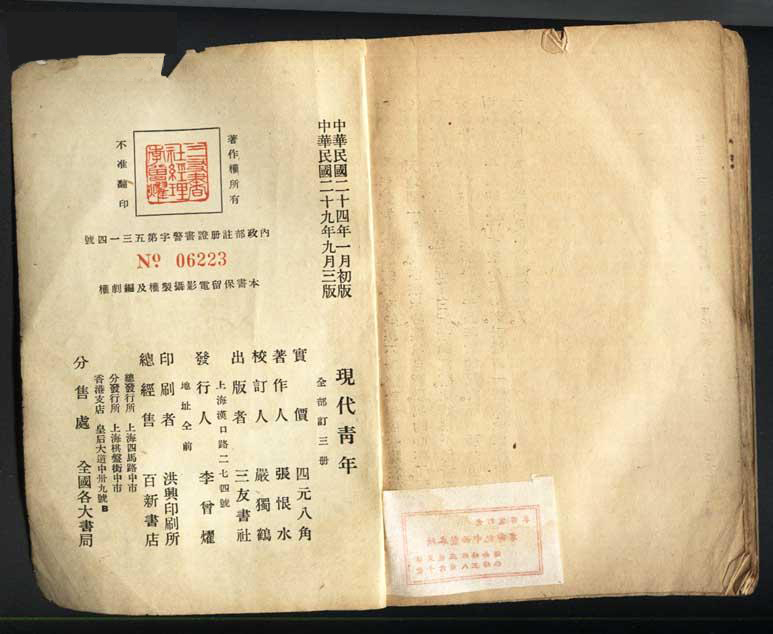 中華民國二十四年一月初版
中華民國二十九年九月三版
著作權所有
三友書
社經理
李曾燿
不准翻印
內政部註册證書警字第五三一四號
Nº 06223
本書保留電影攝製權及編劇權
現代青年
全部訂三册
實價 四元八角
著作人 張恨水
校訂人 嚴獨鶴
出版者 三友書社
上海漢口路二七四號
發行人 李曾燿
地址仝前
印刷者 洪興印刷所
總經售 百新書店
總發行所 上海四馬路中市
分發行所 上海棋盤街中市
香港支店 皇后大道中卅九號B
分售處 全國各大書局